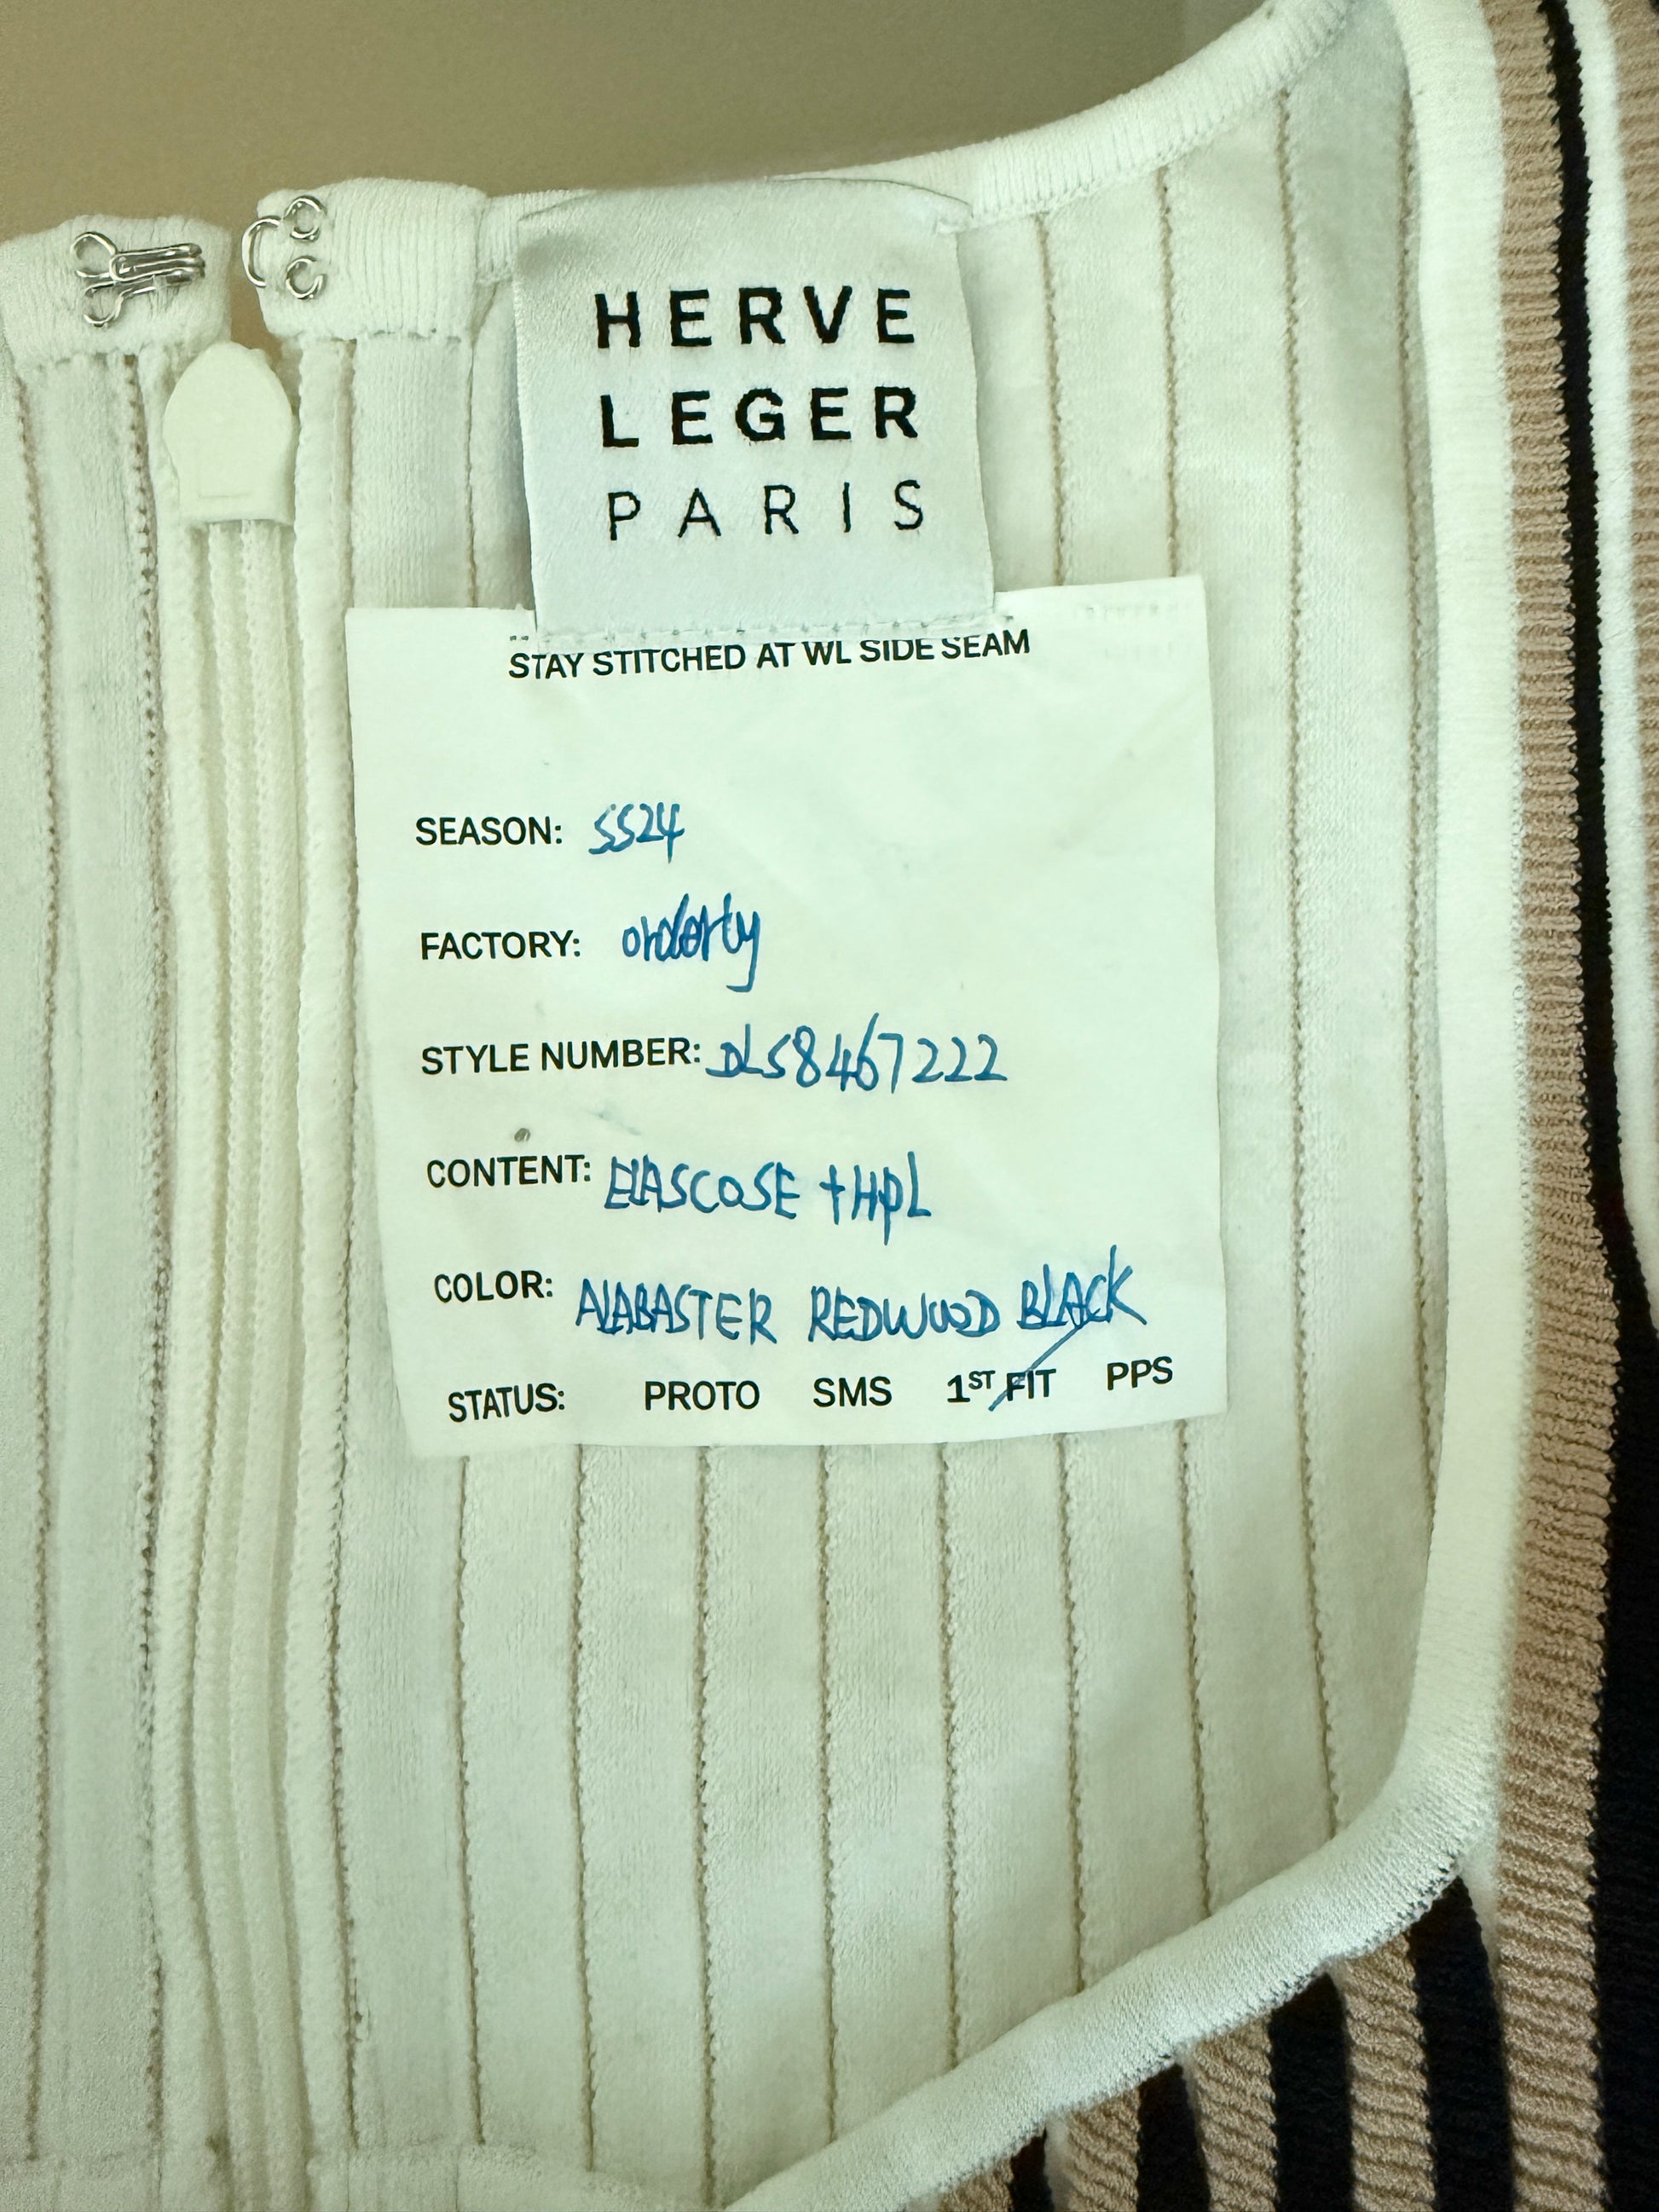 HERVE
LEGER
PARIS
STAY STITCHED AT WL SIDE SEAM
SEASON: SS24
FACTORY: orderly
STYLE NUMBER: DLS8467222
CONTENT: ELASCOSE + HPL
COLOR: ALABASTER REDWOOD BLACK
STATUS: PROTO SMS 1ST FIT PPS